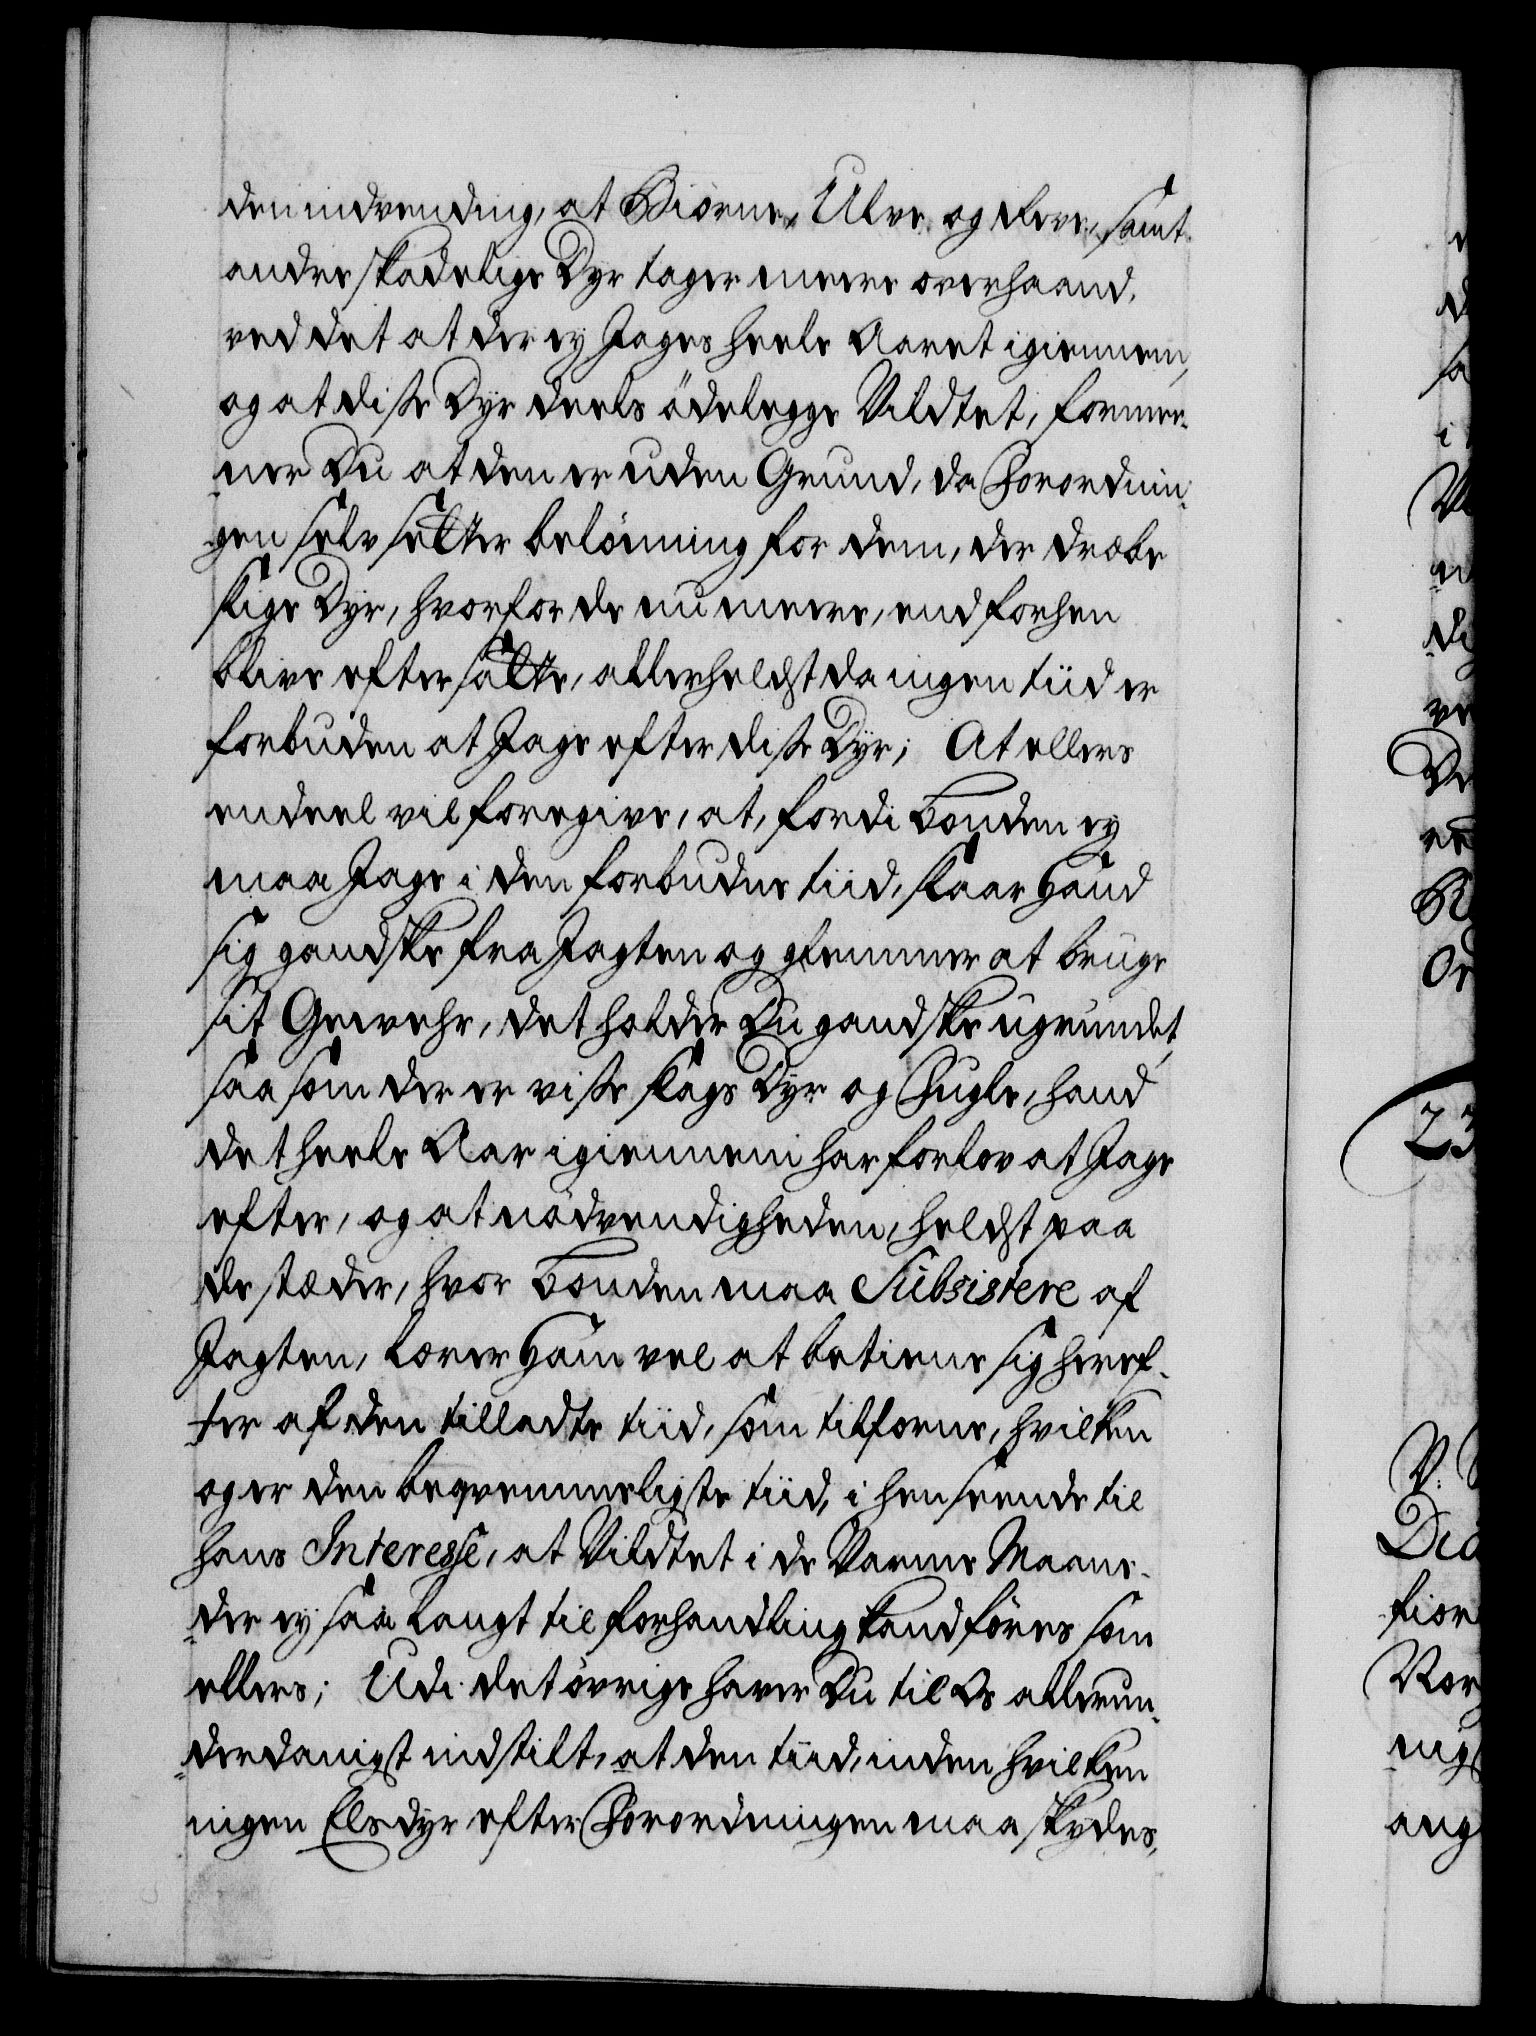 den indvending, at Biörne, Ulve og Love, samt
andre skadelige Dyr tager meere overhaand,
ved det at der ey Jages heele Aaret igiennem,
og at disse Dyr deels ödelegge Vildtet, formee-
ner Du at den er uden Grund, da Forordnin-
gen selv sætter belönning for dem, der dræbe
slige Dyr, hvorfor de nu meere, end forhen
blive eftersatte, allerheldst da ingen tiid er
forbuden at Jage efter disse Dyr; At ellers
endeel vil foregive, at, fordi bonden ey
maa Jage i den forbudne tiid, slaar Hand
sig gandske fra Jagten og glemmer at bruge
sit Gewehr, det holder Du gandske ugrundet,
saasom der er visse slags Dyr og Fugle, hand
det heele Aar igiennem har forlov at Jage
efter, og at nödvendigheden, heldst paa
de stæder, hvor bonden maa Subsistere af
Jagten, lærer Ham vel at betiene sig heref-
ter af den tilladte tiid, som tilforne, hvilken
og er den beqvemmeligste tiid, i henseende til
hans Interesse, at Vildtet i de Varme Maane-
der ey saa langt til forhandling kand föres som
ellers; Udi det övrige haver Du til Os allerun-
derdanigst indstilt, at den tiid, inden hvilken
ingen Elsdyr efter Forordningen maa skydes,